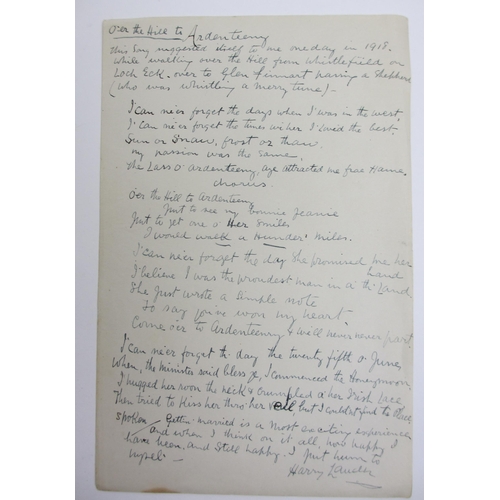 O'er the Hill to Ardenteeny
This Song suggested itself to me one day in 1918.
while walking over the Hill from Whistlefield on
Loch Eck. over to Glen Finnart passing a Shepherd
(who was whistling a merry tune) -
I can ne'er forget the days when I was in the west,
I can ne'er forget the times wi' her I lo'ed the best.
Sun or Snaw, frost or thaw.
my passion was the same.
The Lass o' Ardenteeny, aye attracted me frae Hame.
chorus.
O'er the Hill to Ardenteeny
Just to see my bonnie Jeanie
Just to get one o' Her Smiles
I would walk a Hunder' miles.
I can ne'er forget the day she promised me her
hand
I believe I was the proudest man in a' the Land
She Just wrote a simple note
To say you've won my heart
Come o'er to Ardenteeny & will never never part
I can ne'er forget the day the twenty fifth o' June,
When, the Minister said bless ye, I commenced the Honeymoon,
I hugged her roon the neck & crumpled a' her Irish Lace
Then tried to kiss her thro' her veil but I
spoken. Gettin married is a most exciting experience
and when I think on it all how happy I
have been, and still happy. I Just hum to
mysel' -
Harry Lauder